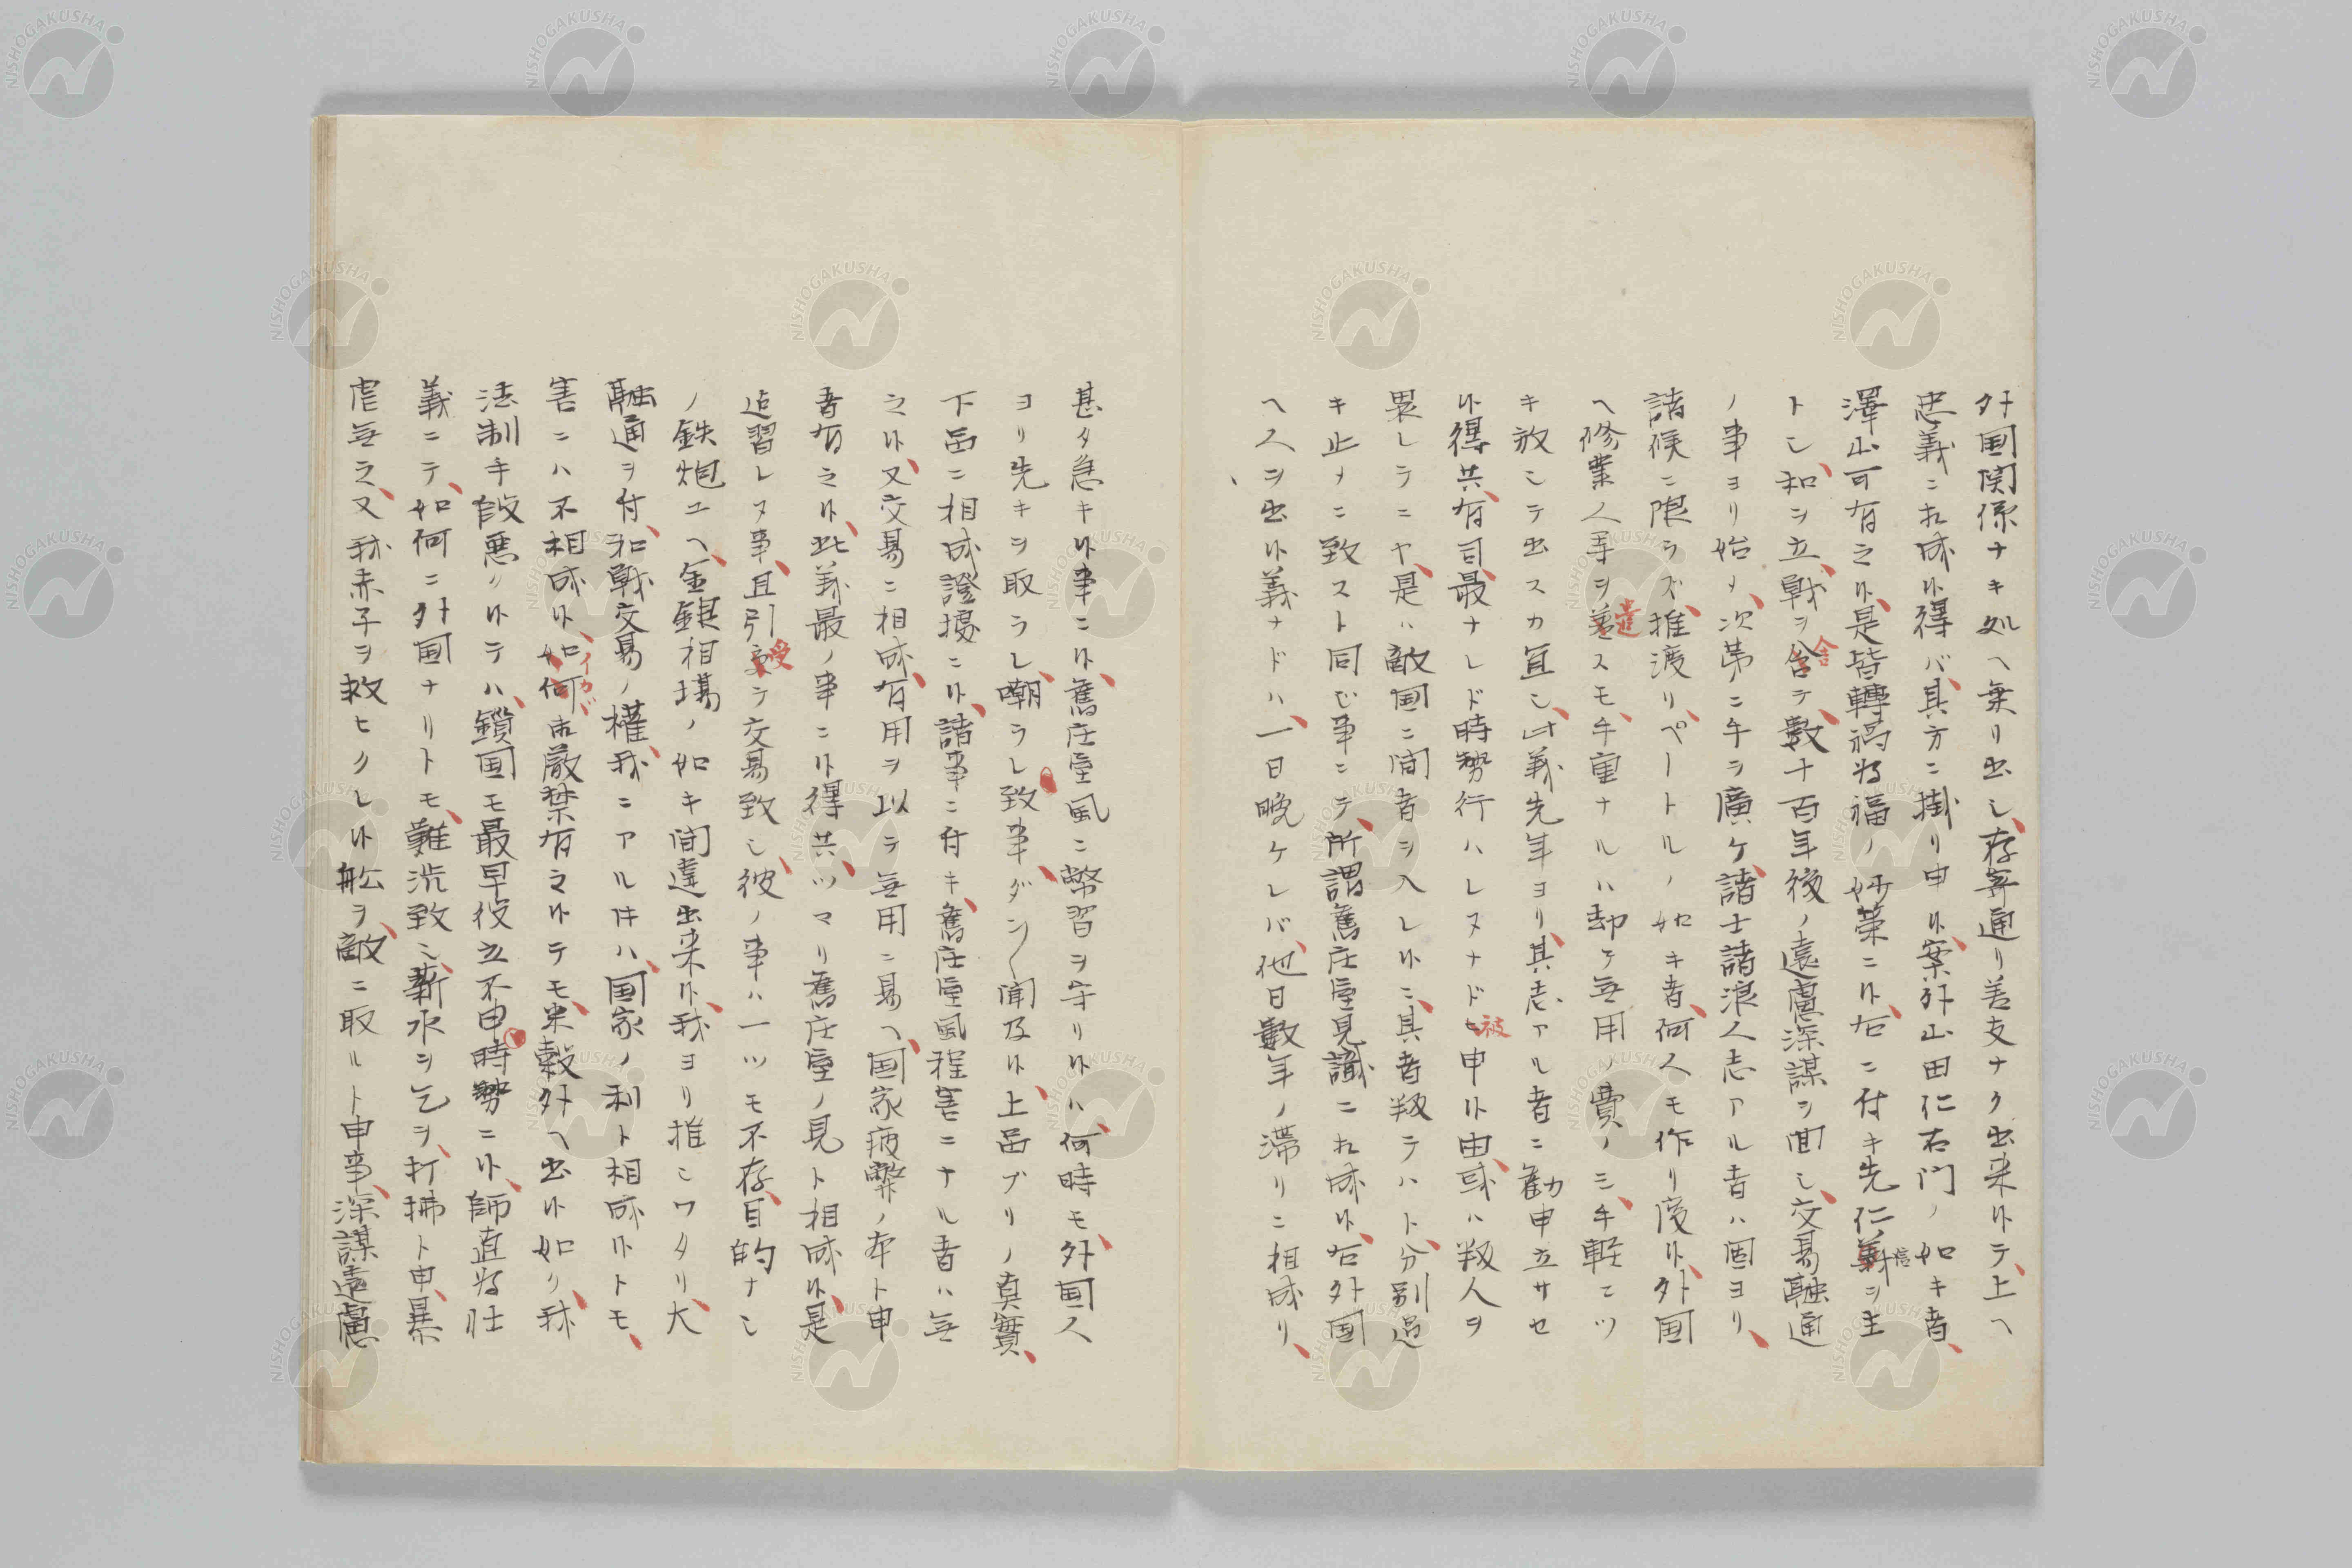 外国関係ナキ処ヘ乗リ出シ、存寄通リ差支ナク出来候テ、上ヘ
忠義ニ相成候得バ、其方ニ掛リ申候、案外山田仁右門ノ如キ者、
澤山可有之候、是皆轉禍為福ノ妙策ニ候、右ニ付キ先仁義ヲ主
信
トシ、和ヲ立、戦ヲ含テ、數十百年後ノ遠慮深謀ヲ回シ、交易融通
含
ノ事ヨリ始メ、次第ニ手ヲ廣ケ、諸士諸浪人志アル者ハ固ヨリ、
諸候ニ限ラズ、推渡リ、ペートルノ如キ者、何人モ作リ度候、外国
ヘ修業人等ヲ差スモ、手重ナルハ却テ無用ノ費ノミ、手軽ニツ
遣
キ放シテ出スカ宜シ、此義先年ヨリ、其志アル者ニ勸申立サセ
候得共、有司最ナレド時勢行ハレヌナドヒ申候由、或ハ叛人ヲ
被
畏レテニヤ、是ハ敵国ニ間者ヲ入レ候ニ、其者叛テハト、分別過
キ止メニ致スト同ジ事ニテ、所謂舊庄屋見識ニ相成候、右外国
ヘ人ヲ出候義ナドハ、一日晩ケレバ、他日數年ノ滞リニ相成リ、
甚タ急キ候事ニ候、舊庄屋風ニ弊習ヲ守リ候ハ、何時モ、外国人
ヨリ先キヲ取ラレ、嘲ラレ致事、ダン〱聞及候、上品ブリノ真實、
下品ニ相成證據ニ候、諸事ニ付キ、舊庄屋風程害ニナル者ハ無
之候、又交易ニ相成、有用ヲ以テ無用ニ易ヘ、国家疲弊ノ本ト申
者有之候、此義最ノ事ニ候得共、ツマリ舊庄屋ノ見ト相成候、是
迠習レヌ事、且引受テ交易致シ、彼ノ事ハ一ツモ不存、目的ナシ
受
ノ鉄炮ユヘ、金銀相場ノ如キ間違出来候、我ヨリ推シワタリ、大
融通ヲ付、和戦交易ノ權、我ニアル件ハ、国家ノ利ト相成候トモ、
害ニハ不相成候、如何ホ厳禁有之候テモ、米穀外ヘ出候如ク、我
イカド
法制キ敗悪ク候テハ、鎖国モ最早役立不申時勢ニ候、師直為壮
義ニテ、如何ニ外国ナリトモ、難渋致シ、薪水ヲ乞ヲ、打拂ト申、暴
虐無之、又我赤子ヲ救ヒクレ候舩ヲ、敵ニ取ルト申事、深謀遠慮